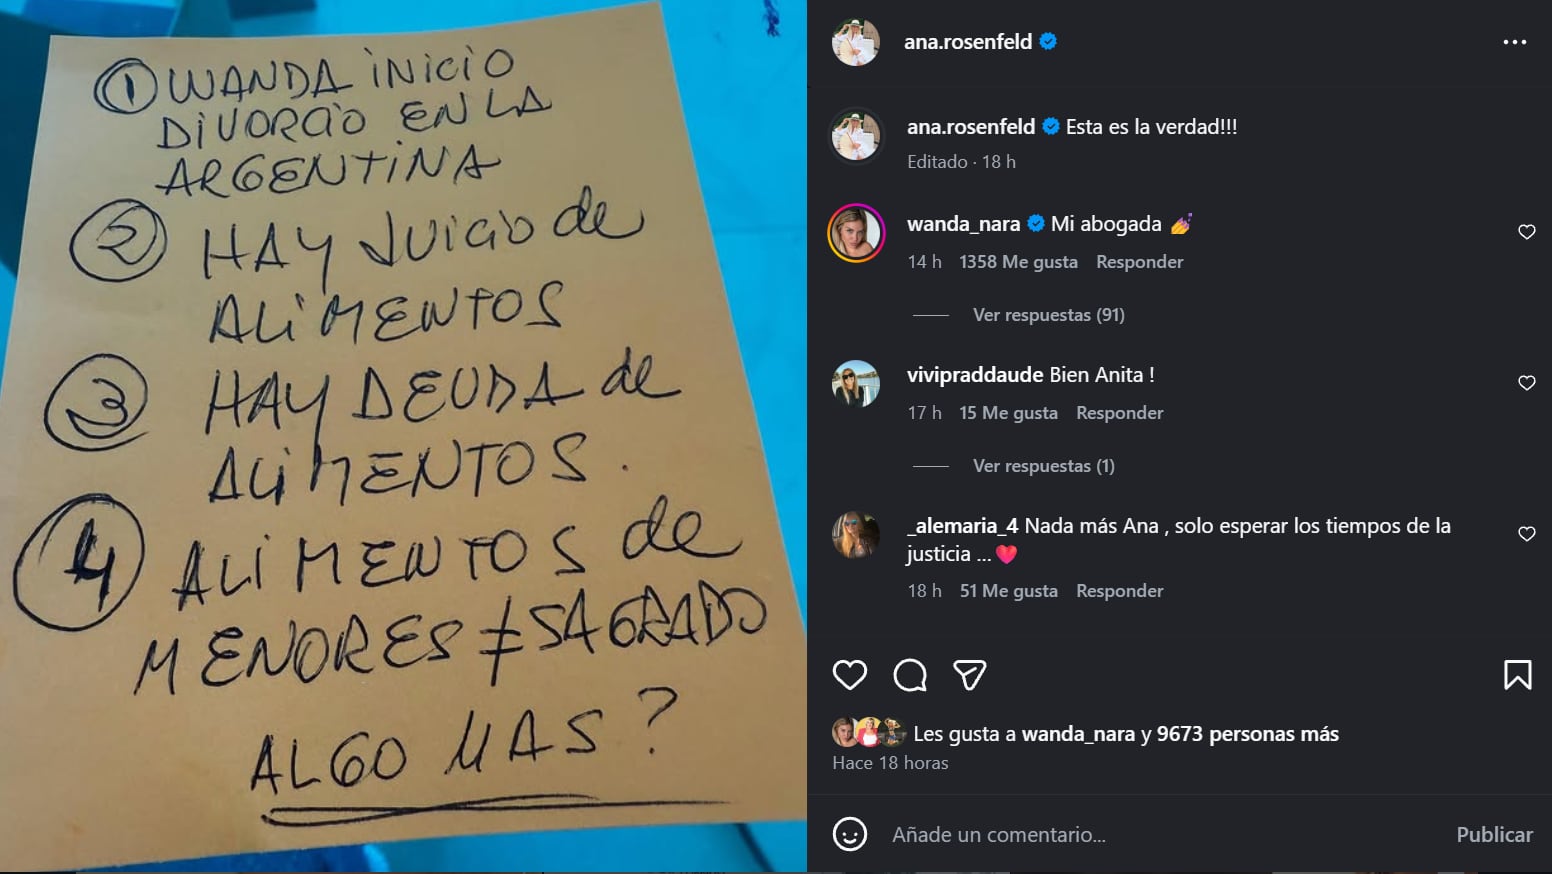 ① WANDA iNiCiO
DiVORCiO EN LA
ARGENTiNA
② HAY JUiCiO de
ALiMENTOS
③ HAY DEUDA de
ALiMENTOS.
④ ALiMENTOS de
MENORES ≠ SAGRADO
ALGO MAS?
ana.rosenfeld
ana.rosenfeld Esta es la verdad!!!
Editado · 18 h
wanda_nara Mi abogada 💅
14 h 1358 Me gusta Responder
Ver respuestas (91)
vivipraddaude Bien Anita !
17 h 15 Me gusta Responder
Ver respuestas (1)
_alemaria_4 Nada más Ana , solo esperar los tiempos de la
justicia ...❤️
18 h 51 Me gusta Responder
Les gusta a wanda_nara y 9673 personas más
Hace 18 horas
Añade un comentario... Publicar